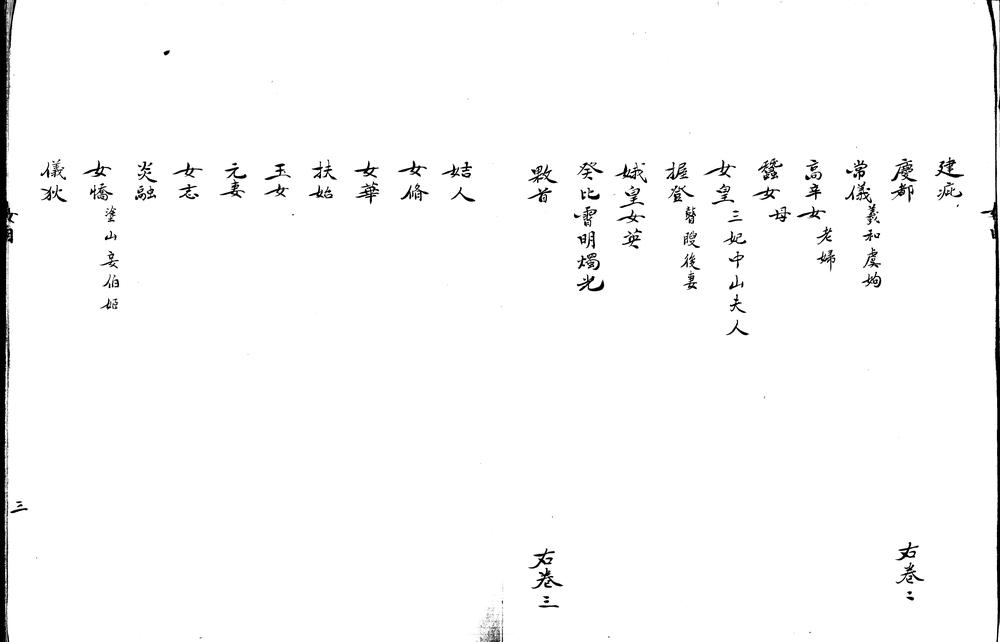 建疵
慶都 右卷二
常儀 羲和虞姁
高辛女 老婦
蠶女母
女皇 三妃中山夫人
握登 瞽瞍後妻
娥皇女英
癸比霄明燭光
敤首 右卷三
姞人
女脩
女華
扶始
玉女
元妻
女志
炎融
女憍 塗山妾伯姬
儀狄
三